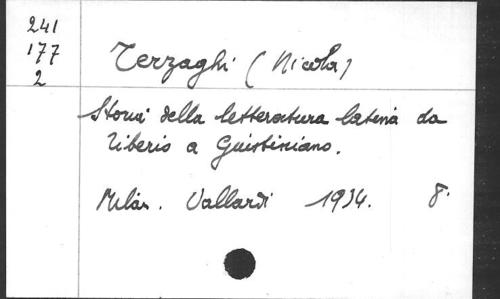 241
177
2
Terzaghi (Nicola)
Storia della letteratura latina da
Tiberio a Giustiniano.
Milan. Vallardi 1934. 8.